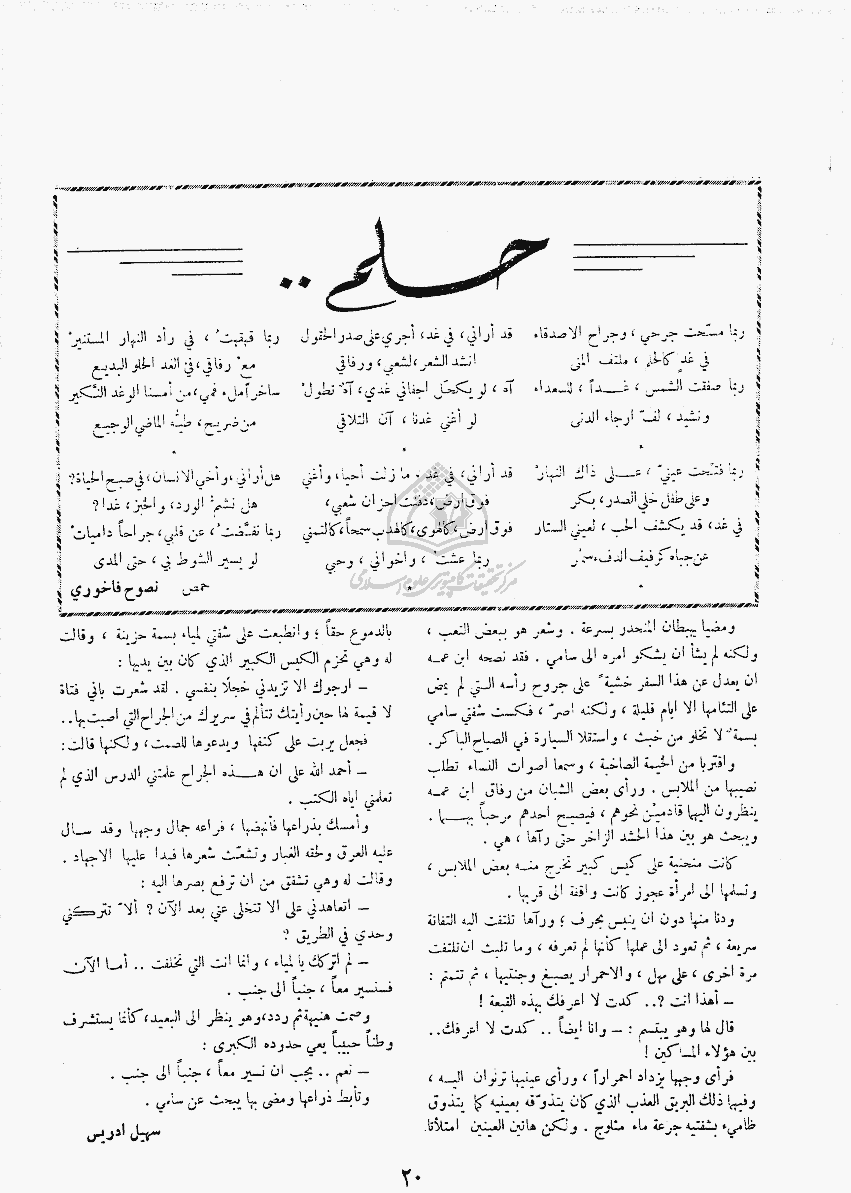 حلم ..
ربما مسّحت جرحي ، وجراح الاصدقاء
في غدٍ كالحلم ، ملتف المنى
ربما صفقت الشمس ، غــداً ، للسعداء
ونشيد ، لفّ ارجاء الدنى
*
ربما فتّحت عينيّ ، عــلى ذاك النهار
وعلى طفل خلي الصدر ، بكر
في غد ، قد يكشف الحب ، لعيني الستار
عن حباه كرفيف الدفء
*
قد أراني ، في غد ، أجري على صدر الحقول
انشد الشعر ، لشعبي ، ورفاقي
آه ، لو يكحّل اجفاني غدي ، آه تطول
لو أغني غدنا ، آن التلاقي
*
قد أراني ، في غد ، ما زلت أحيا ، وأغني
فوق أرض ، دفنت احزان شعبي ،
فوق أرض ، كالهوى ، كالهدب سمحاً ، كالتمني
ربما عشت ، واخواني ، وحبي
*
ربما قهقهت ، في رأد النهار المستنير
مع رفاقي ، في الغد الحلو البديع
ساخراً ملء فمي ، من أمسنا الوغد النكير
من ضريح ، طيّه الماضي الوجيع
*
هل أراني ، وأخي الانسان ، في صبح الحياة ؟
هل نشم الورد ، والخبز ، غدا ؟
ربما نفّضت ، عن قلبي ، جراحاً داميات
لو يسير الشوط بي ، حتى المدى
حمص نصوح فاخوري
مركز تحقيقات كامپيوترى علوم اسلامى
ومضيا يهبطان المنحدر بسرعة . وشعر هو ببعض التعب ،
ولكنه لم يشأ أن يشكو امره الى سامي . فقد نصحه ابن عمه
ان يعدل عن هذا السفر خشية على جروح رأسه التي لم يمض
على التئامها الا ايام قليلة ، ولكنه اصرّ ، فكست شفتي سامي
بسمة لا تخلو من خبث ، واستقلا السيارة في الصباح الباكر .
واقتربا من الخيمة الصاخبة ، وسمعا أصوات النساء تطلب
نصيبها من الملابس . ورأى بعض الشبان من رفاق ابن عمه
ينظرون اليهما قادمين نحوهم ، فيصيح احدهم مرحباً بهما .
ويبحث هو بين هذا الحشد الزاخر حتى رآها ، هي .
كانت منحنية على كيس كبير تخرج منه بعض الملابس ،
وتسلمها الى امرأة عجوز كانت واقفة الى قربها .
ودنا منها دون ان ينبس بحرف ؛ ورآها تلتفت اليه التفاتة
سريعة ، ثم تعود الى عملها كأنها لم تعرفه ، وما تلبث ان تلتفت
مرة اخرى ، على مهل ، والاحمرار يصبغ وجنتيها ، ثم تتمتم :
– أهذا انت ؟.. كدت لا اعرفك بهذه القبعة !
قال لها وهو يبتسم : – وانا ايضاً .. كدت لا اعرفك..
بين هؤلاء المساكين !
فرأى وجهها يزداد احمراراً ، ورأى عينيها ترنوان اليه ،
وفيهما ذلك البريق العذب الذي كان يتذوّقه بعينيه كما يتذوق
ظامىء بشفتيه جرعة ماء مثلوج . ولكن هاتين العينين امتلأتا
بالدموع حقاً ؛ وانطبعت على شفتي لمياء بسمة حزينة ، وقالت
له وهي تحزم الكيس الكبير الذي كان بين يديها :
– ارجوك الا تزيدني خجلًا بنفسي . لقد شعرت باني فتاة
لا قيمة لها حين رأيتك تتألم في سريرك من الجراح التي اصبت بها..
فجعل يربت على كتفها ويدعوها للصمت ، ولكنها قالت :
– أحمد الله على ان هــذه الجراح علمتني الدرس الذي لم
تعلمني اياه الكتب .
وأمسك بذراعها فأنهضها ، فراعه جمال وجهها وقد سال
عليه العرق ولحقه الغبار وتشعّث شعرها فبدا عليها الاجهاد .
وقالت له وهي تشفق من ان ترفع بصرها اليه :
– اتعاهدني على الا تتخلى عني بعد الآن ؟ ألا تتركني
وحدي في الطريق ؟
– لم اتركك يا لمياء ، وانما انت التي تخلفت .. أما الآن
فسنسير معاً ، جنباً الى جنب .
وصمت هنيهة ثم ردد ، وهو ينظر الى البعيد ، كأنما يستشرف
وطناً حبيباً يعي حدوده الكبرى :
– نعم .. يجب ان نسير معاً ، جنباً الى جنب .
وتأبط ذراعها ومضى بها يبحث عن سامي .
سهيل ادريس
٢٠